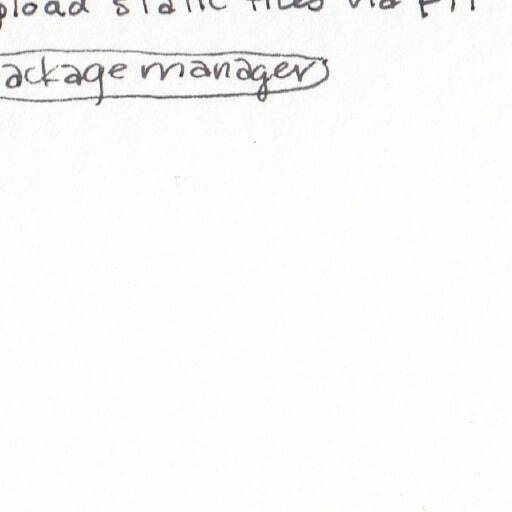 pload static files via
ackage manager